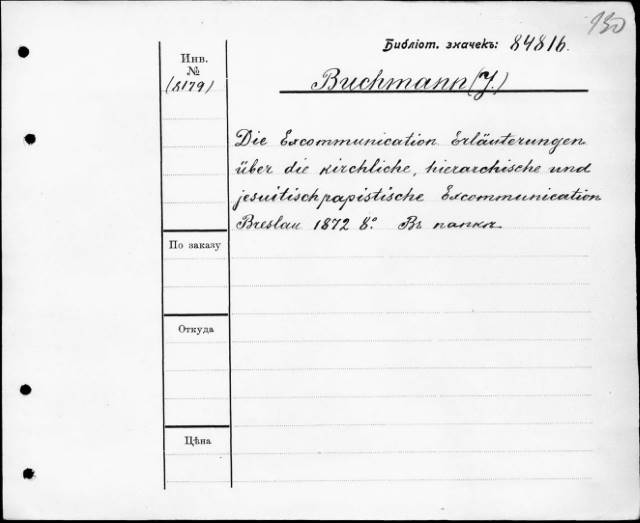 150
Библіот. значекъ: 84816.
Инв.
№
(8179)
Buchmann (J.)
Die Excommunication Erläuterungen
über die kirchliche, hierarchische und
jesuitischpapistische Excommunication
Breslau 1872 8°. Въ папкѣ.
По заказу
Откуда
Цѣна